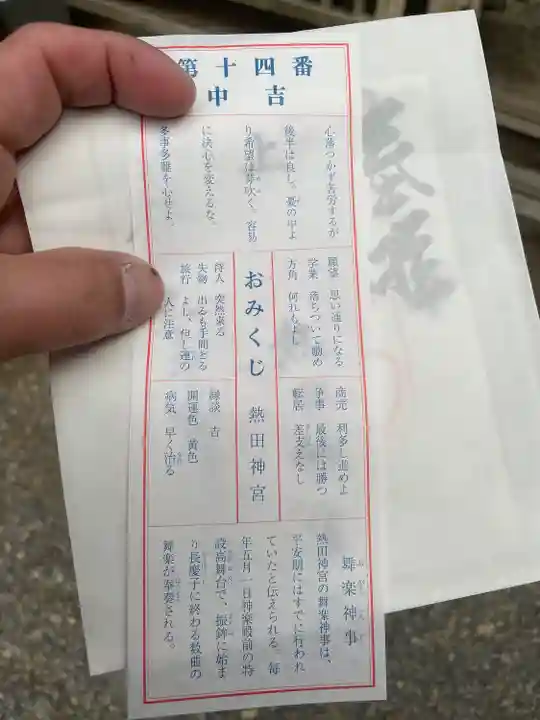 第十四番
中吉
心落つかず苦労するが
後半は良し。憂の中よ
り希望は芽吹く。容易
に決心を変えるな。
多事多難を心せよ。
願望 思い通りになる
学業 落ちついて勉め
方角 何れもよし
待人 突然来る
失物 出るも手間どる
旅行 よし、但し連の
人に注意
おみくじ 熱田神宮
商売 利多し進めよ
争事 最後には勝つ
転居 差支えなし
縁談 吉
開運色 黄色
病気 早く治る
舞楽神事
熱田神宮の舞楽神事は、
平安期にはすでに行われ
ていたと伝えられる。毎
年五月一日神楽殿前の特
設高舞台で、振鉾に始ま
り長慶子に終わる数曲の
舞楽が奉奏される。